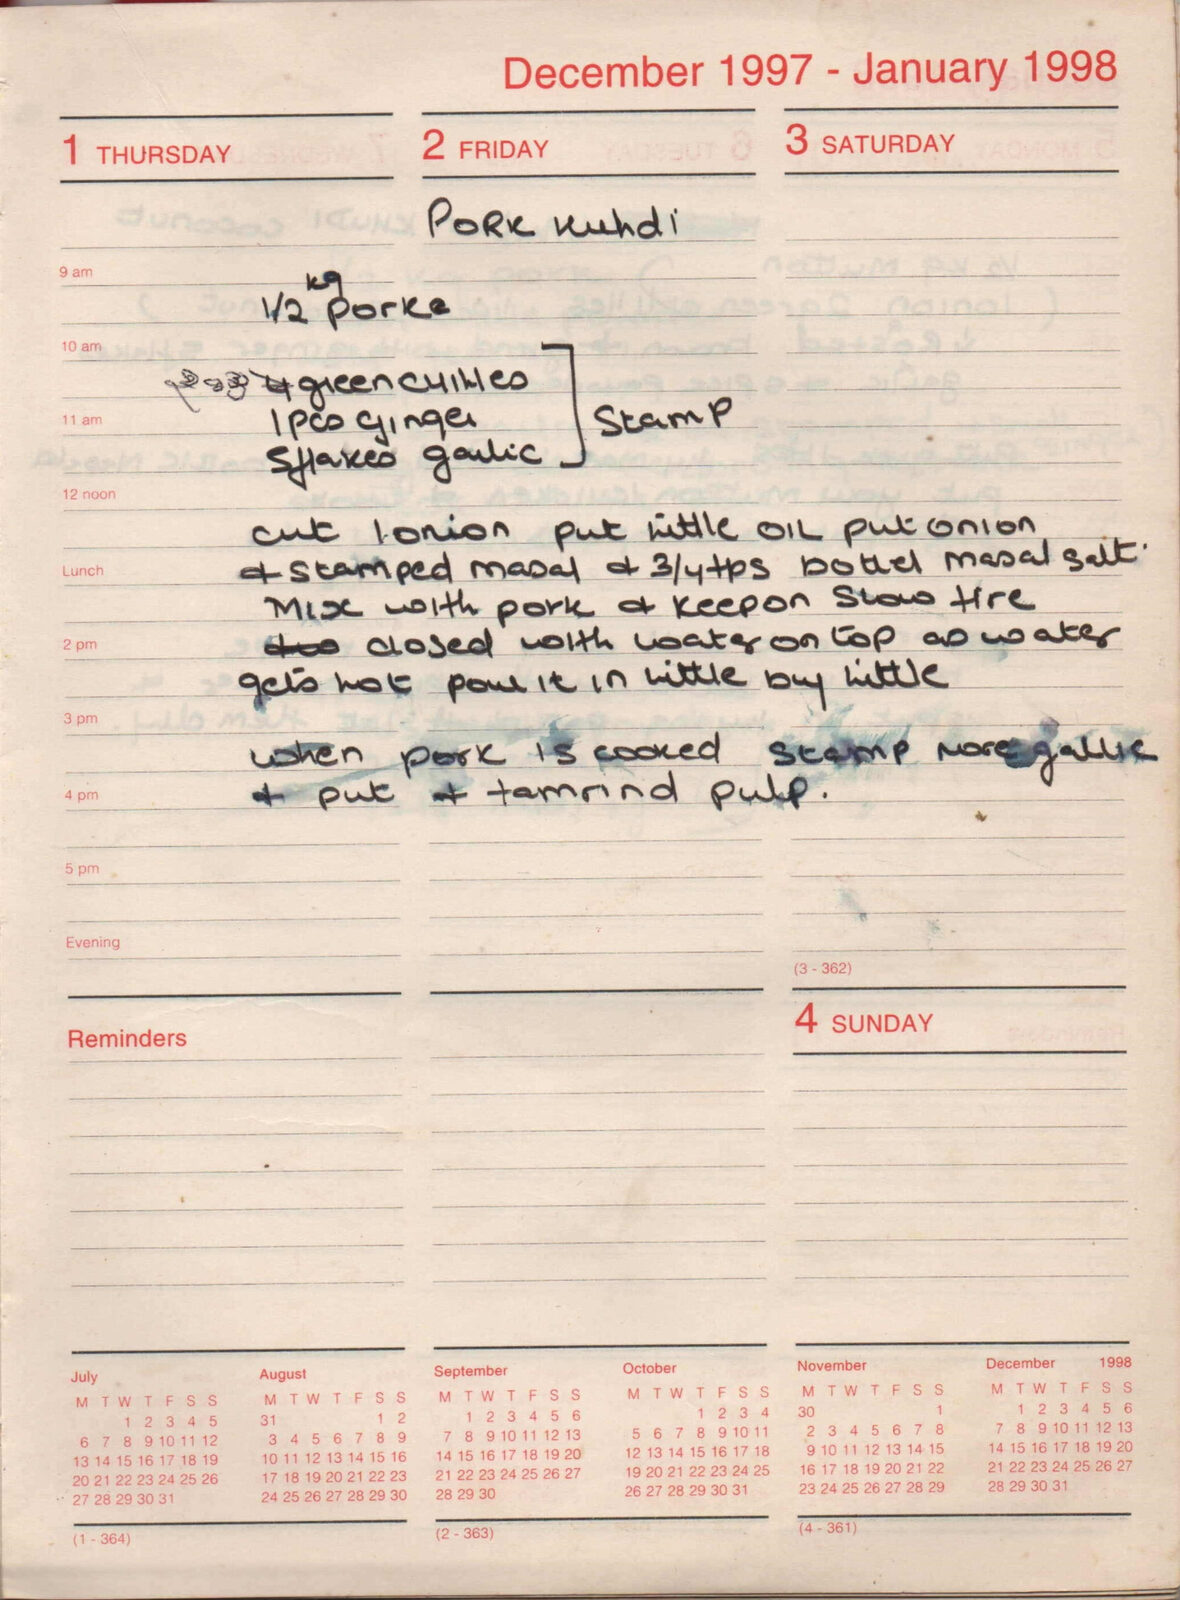 December 1997 - January 1998
1 THURSDAY
2 FRIDAY
3 SATURDAY
PORK Kuhdi
9 am
kg
1/2 porke
10 am
4 green chillies
11 am
1 pco ginger
Stamp
5 flakes garlic
12 noon
cut 1 onion put little OIL put onion
Lunch
& stamped masal & 3/4 tps bottel masal salt
Mix with pork & keep on slow fire
2 pm
closed with water on top as water
gets hot pour it in little by little
3 pm
when pork is cooked stamp more garlic
4 pm
& put & tamrind pulp.
5 pm
Evening
(3 - 362)
Reminders
4 SUNDAY
July
M T W T F S S
1 2 3 4 5
6 7 8 9 10 11 12
13 14 15 16 17 18 19
20 21 22 23 24 25 26
27 28 29 30 31
August
M T W T F S S
31 1 2
3 4 5 6 7 8 9
10 11 12 13 14 15 16
17 18 19 20 21 22 23
24 25 26 27 28 29 30
September
M T W T F S S
1 2 3 4 5 6
7 8 9 10 11 12 13
14 15 16 17 18 19 20
21 22 23 24 25 26 27
28 29 30
October
M T W T F S S
1 2 3 4
5 6 7 8 9 10 11
12 13 14 15 16 17 18
19 20 21 22 23 24 25
26 27 28 29 30 31
November
M T W T F S S
30 1
2 3 4 5 6 7 8
9 10 11 12 13 14 15
16 17 18 19 20 21 22
23 24 25 26 27 28 29
December 1998
M T W T F S S
1 2 3 4 5 6
7 8 9 10 11 12 13
14 15 16 17 18 19 20
21 22 23 24 25 26 27
28 29 30 31
(1 - 364)
(2 - 363)
(4 - 361)